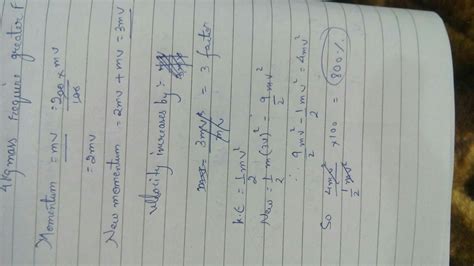 4 kg mass require greater F
Momentum = mv = 200/100 × mv
= 2mv
New momentum = 2mv + mv = 3mv
velocity increases by :-
3mv/mv = 3 factor
K.E = 1/2 mv²
New = 1/2 m(3v)² = 9mv²/2
∴ 9mv²/2 - 1mv²/2 = 4mv²
So 4mv²/(1/2 mv²) × 100 = 800%